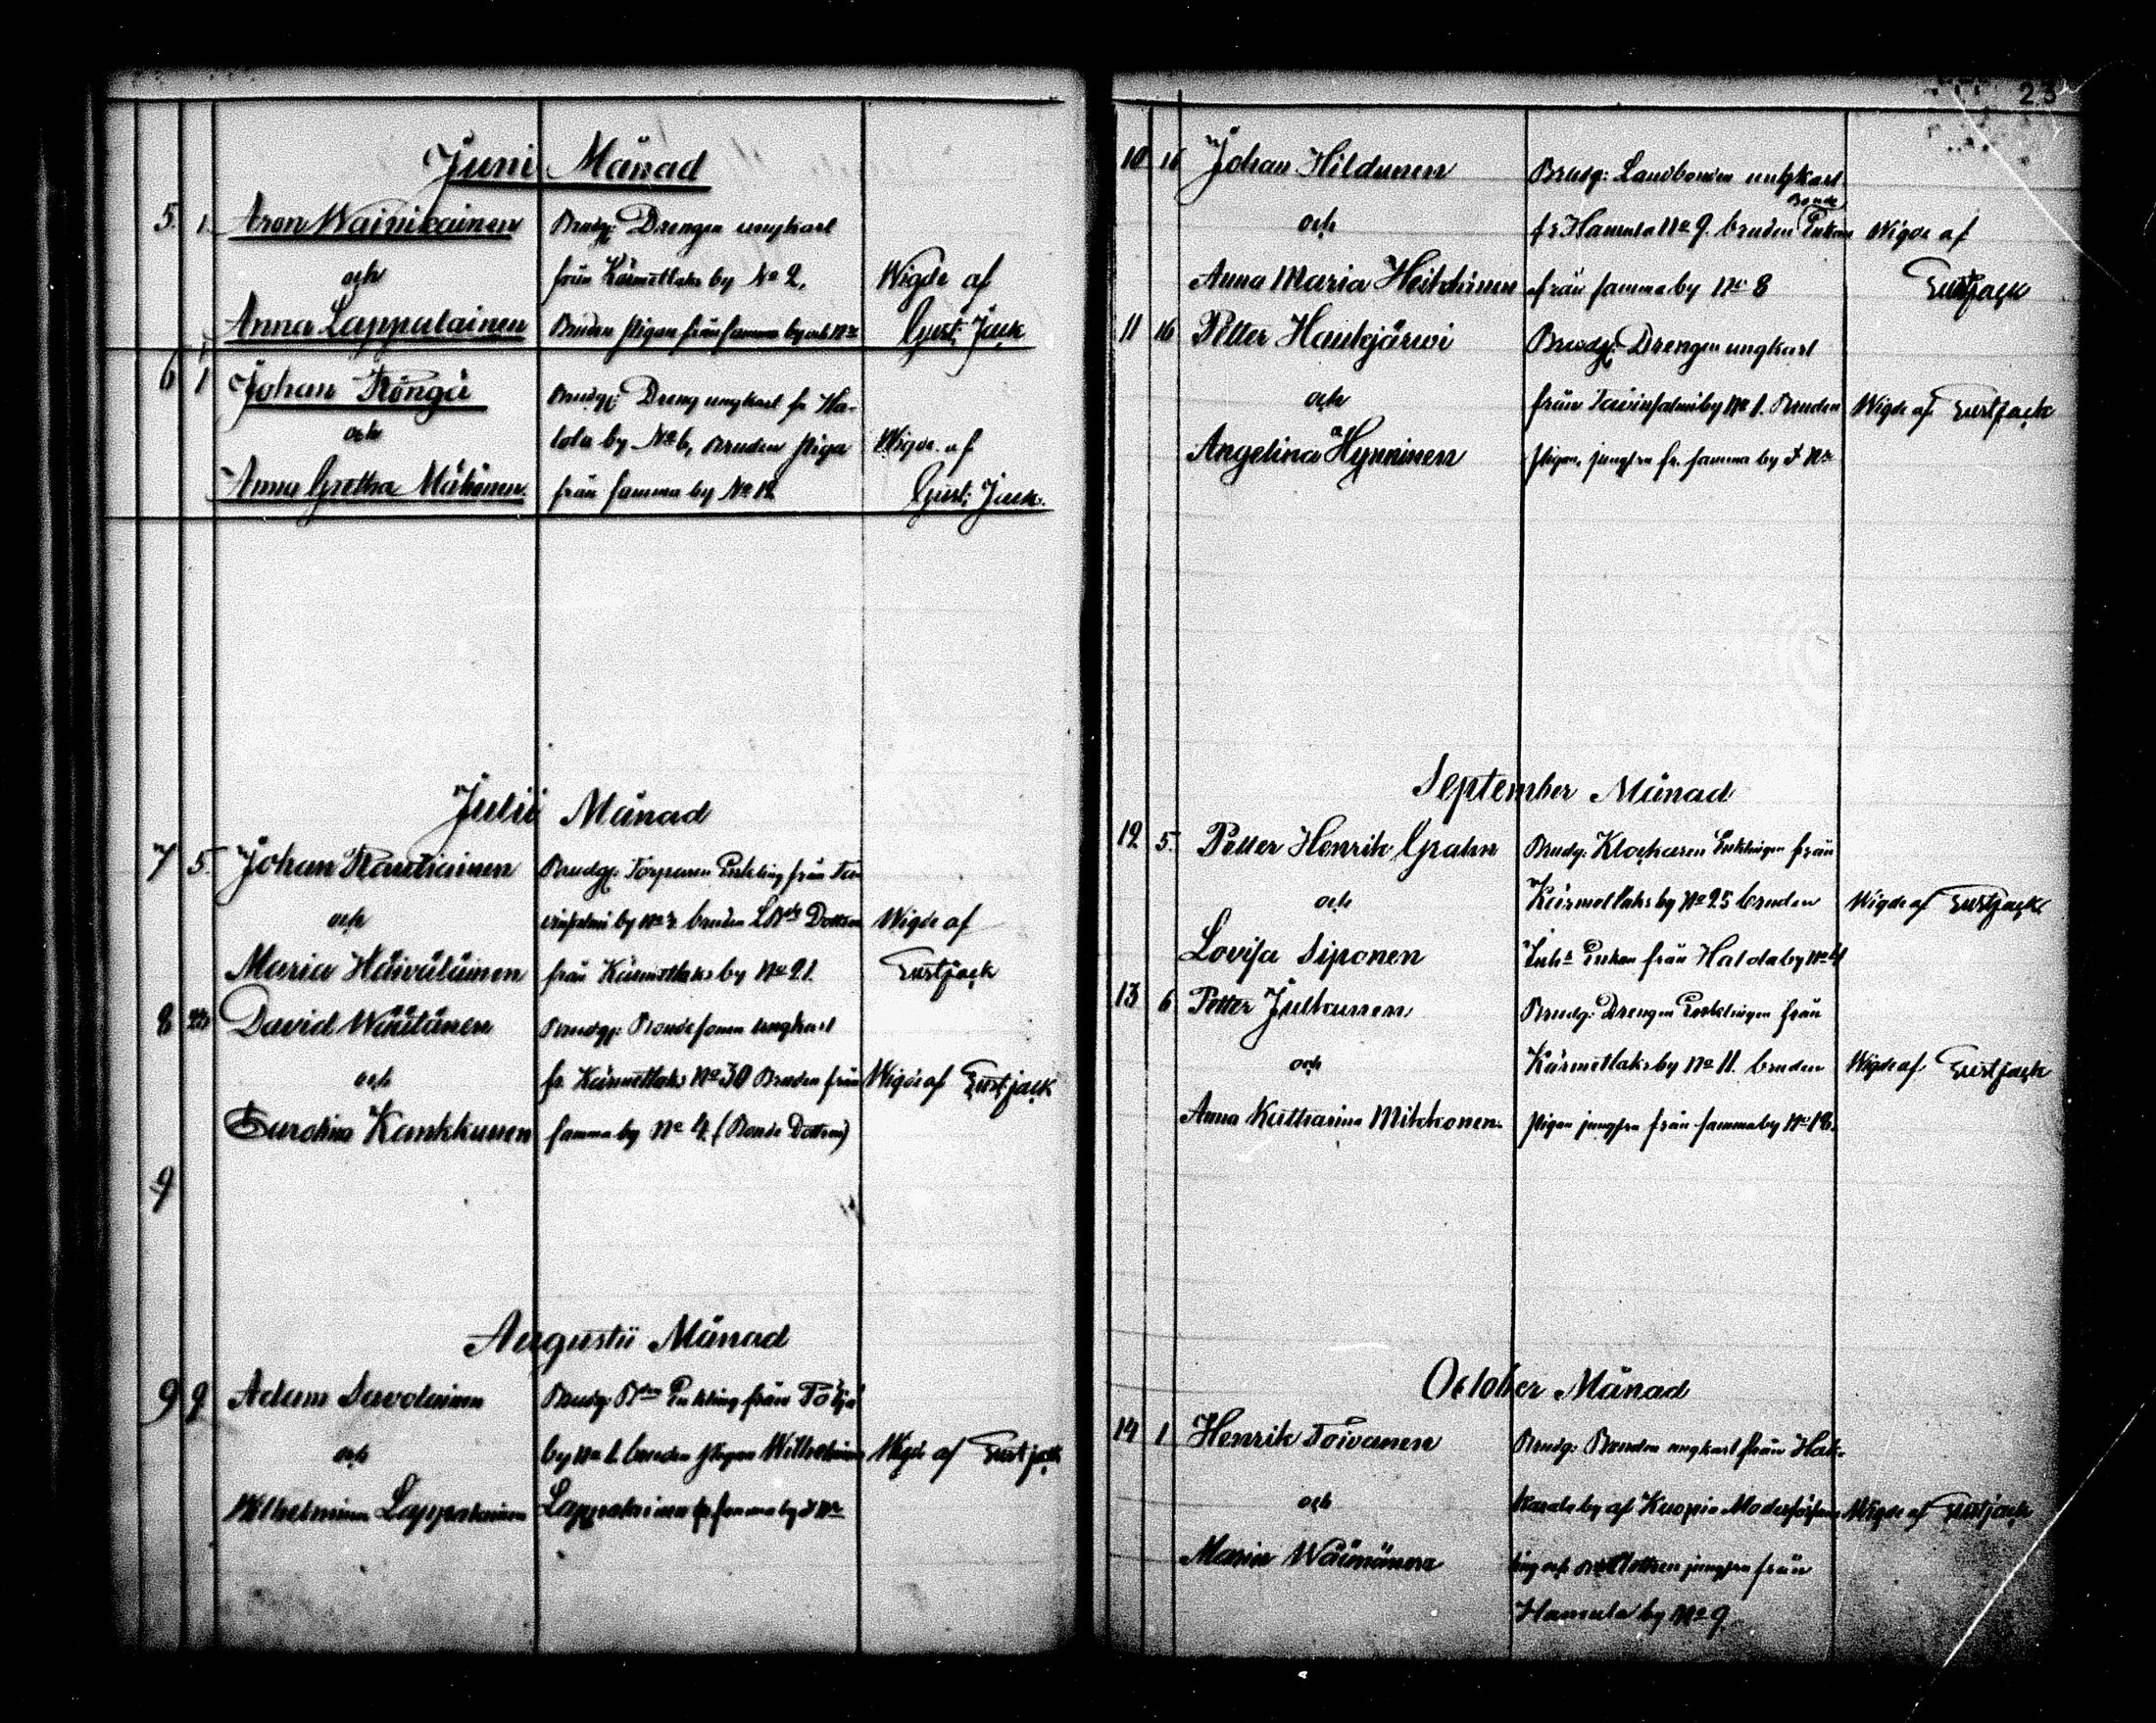 Juni Månad
5. 1. Aron Wainikainen Brudg: Drengen ungkarl
och från Kärmetlaks by No 2, Wigde af
Anna Lappalainen Bruden pigan från samma by och No Gust: Jack
6 1 Johan Röngä Brudg: Dreng ungkarl fr Ha-
och tola by No 6, Bruden piga Wigde af
Anna Gretha Mähönen från samma by No 12 Gust: Jack.
Julii Månad
7 5. Johan Rautiainen Brudg: Torparen Enkling från Ta-
och vinsalmi by No 2 bruden Dottren Wigde af
Maria Häiväläinen från Kärmetlaks by No 21. Gust Jack
8 David Väätänen Brudg: Bondesonen ungkarl
och fr. Kärmetlaks No 30 Bruden från Wigde af Gust jack
Carolina Kankkunen samma by No 4. (Bonde Dottren)
9
Augustii Månad
9 9 Adam Savolainen Brudg. Enkling från
och by No 1. bruden pigan Wilhelmina Wigde af Gust jack
Wilhelmina Lappalainen Lappalainen fr samma by & No
23
10 16 Johan Hildunen Brudg: Landbonden ungkarl
Bonde
och fr Hamula No 9. bruden Enkan Wigde af
Anna Maria Heikkinen från samma by No 8 Gust Jack
11 16 Petter Haukjärwi Brudg: Drengen ungkarl
och från Tavinsalmi by No 1. Bruden Wigde af Gust Jack
Angelina Hynninen pigan, jungfru fr. samma by & No
September Månad
12 5. Petter Henrik Grahn Brudg: Klockaren Enklingen från
och Kärmetlaks by No 25 bruden Wigde af Gust Jack
Lovisa Siponen Enkan från Hatola by No 4
13 6 Petter Julkunen Brudg: Drengen Enklingen från
och Kärmetlaks by No 11. bruden Wigde af Gust jack
Anna Katharina Mikkonen. pigan jungfru från samma by No 12.
October Månad
14 1 Henrik Toivanen Brudg: Bonden ungkarl från Hak-
och karala by af Kuopio Moderförsam- Wigde af Gust jack
Maria Väänänen ling och Dottren jungfru från
Hamula by No 9